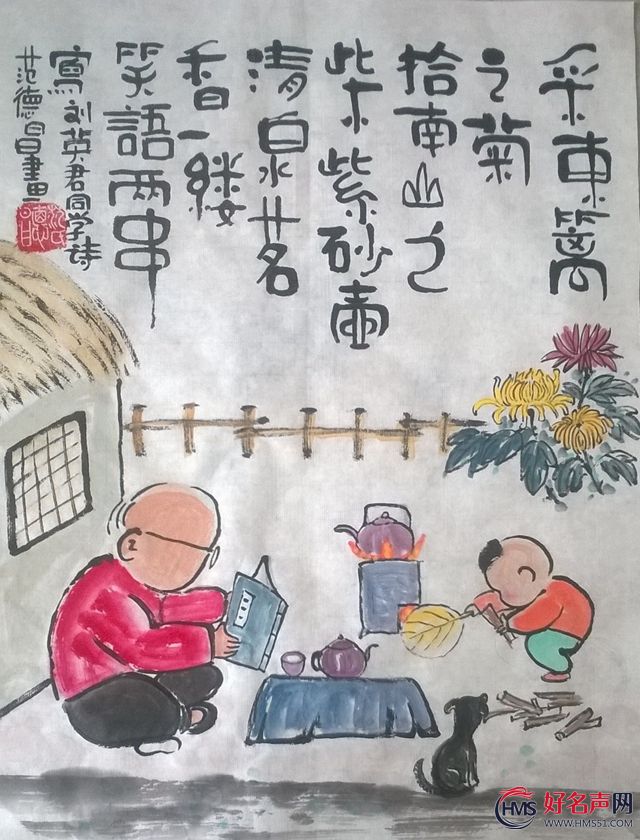 采東篱
之菊
拾南山之
柴紫砂壶
清泉茗
香一缕
笑語两串
寫刘英君同学诗
范德昌畫
HMS 好名声网
WWW.HMS51.COM